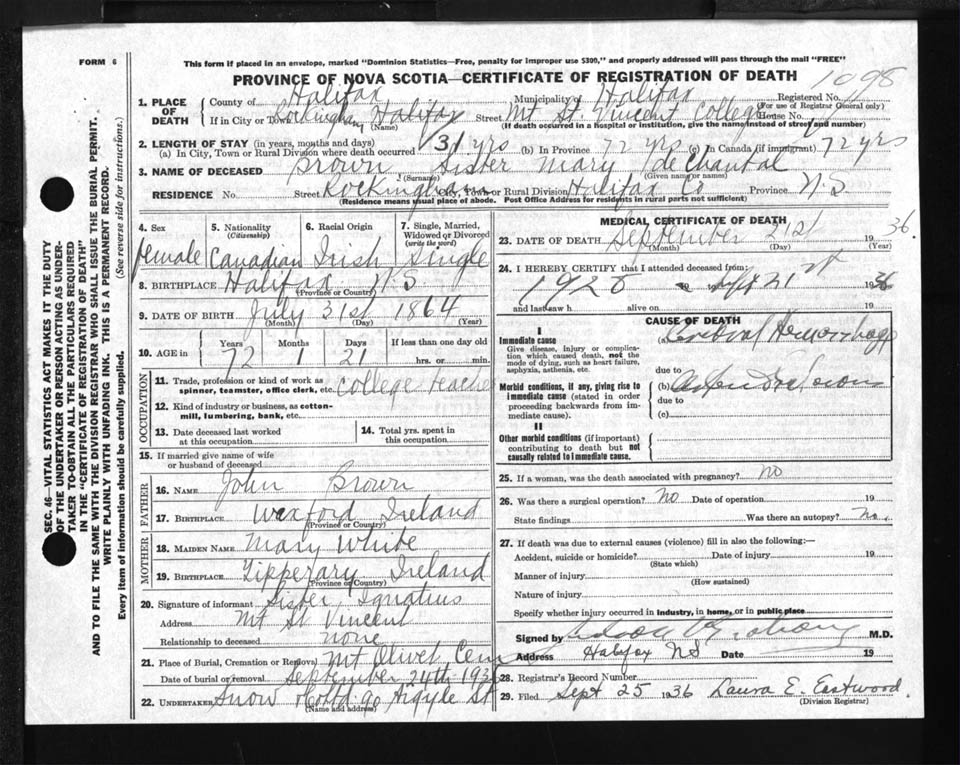 FORM 6
This form if placed in an envelope, marked "Dominion Statistics—Free, penalty for improper use $300," and properly addressed will pass through the mail "FREE"
PROVINCE OF NOVA SCOTIA—CERTIFICATE OF REGISTRATION OF DEATH
SEC. 46—VITAL STATISTICS ACT MAKES IT THE DUTY
OF THE UNDERTAKER OR PERSON ACTING AS UNDER-
TAKER TO OBTAIN ALL THE PARTICULARS REQUIRED
IN THE "CERTIFICATE OF REGISTRATION OF DEATH"
AND TO FILE THE SAME WITH THE DIVISION REGISTRAR WHO SHALL ISSUE THE BURIAL PERMIT.
WRITE PLAINLY WITH UNFADING INK. THIS IS A PERMANENT RECORD.
Every item of information should be carefully supplied. (See reverse side for instructions.)
1. PLACE OF DEATH
County of Halifax Municipality of Halifax Registered No. 1098
(For use of Registrar General only)
If in City or Town Rockingham Halifax Street Mt St. Vincent College House No.
(Name) (If death occurred in a hospital or institution, give the name instead of street and number)
2. LENGTH OF STAY (in years, months and days)
(a) In City, Town or Rural Division where death occurred 31 yrs (b) In Province 72 yrs (c) In Canada (if immigrant) 72 yrs
3. NAME OF DECEASED Brown Sister Mary de Chantal
(Surname) (Given name or names)
RESIDENCE No Street Rockingham City, Town or Rural Division Halifax Co Province N.S
(Residence means usual place of abode. Post Office Address for residents in rural parts not sufficient)
4. Sex 5. Nationality (Citizenship) 6. Racial Origin 7. Single, Married, Widowed or Divorced (write the word)
female Canadian Irish Single
8. BIRTHPLACE Halifax N.S
(Province or Country)
9. DATE OF BIRTH July 31st 1864
(Month) (Day) (Year)
10. AGE in Years Months Days If less than one day old
72 1 21 hrs. or min.
OCCUPATION
11. Trade, profession or kind of work as spinner, teamster, office clerk, etc. College teacher
12. Kind of industry or business, as cotton-mill, lumbering, bank, etc.
13. Date deceased last worked at this occupation
14. Total yrs. spent in this occupation
15. If married give name of wife or husband of deceased
FATHER
16. NAME John Brown
17. BIRTHPLACE Wexford Ireland
(Province or Country)
MOTHER
18. MAIDEN NAME Mary White
19. BIRTHPLACE Tipperary Ireland
(Province or Country)
20. Signature of informant Sister Ignatius
Address Mt St Vincent
Relationship to deceased none
21. Place of Burial, Cremation or Removal Mt Olivet Cem
Date of burial or removal September 24th 1936
22. UNDERTAKER Snow & Co Ltd 90 Argyle St
(Name and address)
MEDICAL CERTIFICATE OF DEATH
23. DATE OF DEATH September 21st 1936.
(Month) (Day) (Year)
24. I HEREBY CERTIFY that I attended deceased from:
1925 to Sept 21st 1936
and last saw h alive on 19
CAUSE OF DEATH
I
Immediate cause (a) Cerebral Hemorrhage
Give disease, injury or complica-
tion which caused death, not the
mode of dying, such as heart failure,
asphyxia, asthenia, etc.
due to
Morbid conditions, if any, giving rise to
immediate cause (stated in order
proceeding backwards from im-
mediate cause).
(b)
due to
(c)
II
Other morbid conditions (if important)
contributing to death but not
causally related to immediate cause.
25. If a woman, was the death associated with pregnancy? no
26. Was there a surgical operation? No Date of operation 19
State findings Was there an autopsy? no.
27. If death was due to external causes (violence) fill in also the following:—
Accident, suicide or homicide? Date of injury 19
(State which)
Manner of injury
(How sustained)
Nature of injury
Specify whether injury occurred in industry, in home, or in public place
Signed by M.D.
Address Halifax NS Date 19
28. Registrar's Record Number
29. Filed Sept 25 1936 Laura E. Eastwood.
(Division Registrar)